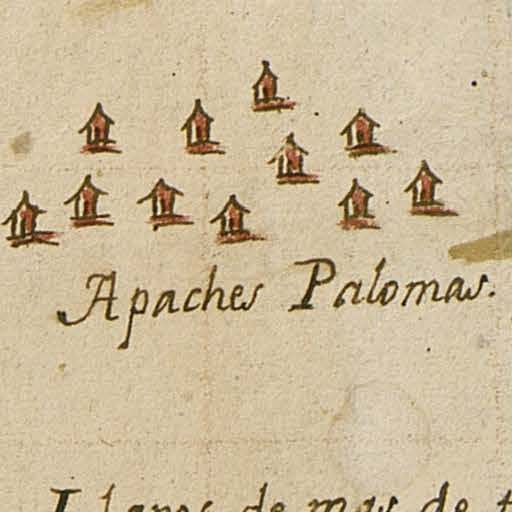 Apaches Palomas.
Llanos de mas de